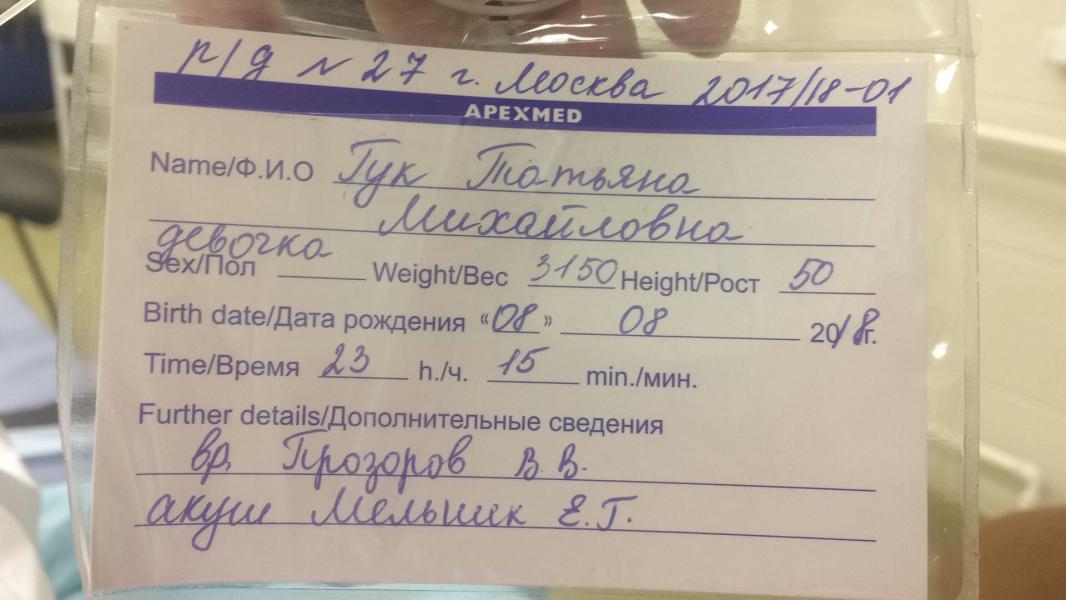 р/д № 27 г. Москва 2017/18-01
APEXMED
Name/Ф.И.О Гук Татьяна
Михайловна
девочка
Sex/Пол Weight/Вес 3150 Height/Рост 50
Birth date/Дата рождения «08» 08 2018г.
Time/Время 23 h./ч. 15 min./мин.
Further details/Дополнительные сведения
вр. Прозоров В.В.
акуш Мельник Е.Г.